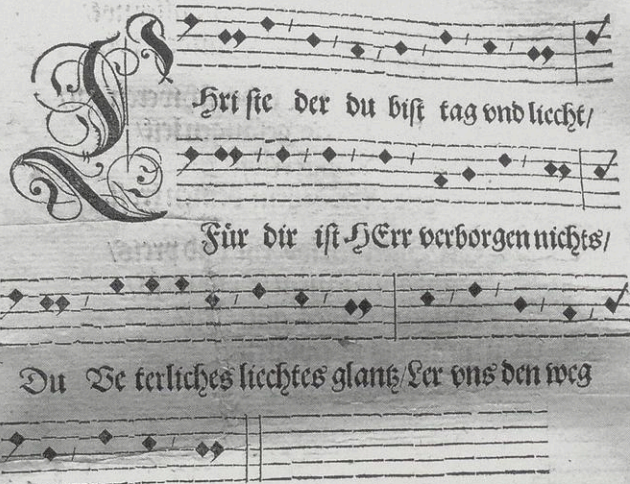 CHriste der du bist tag vnd liecht/
Für dir ist HErr verborgen nichts/
Du Veterliches liechtes glantz/Ler vns den weg